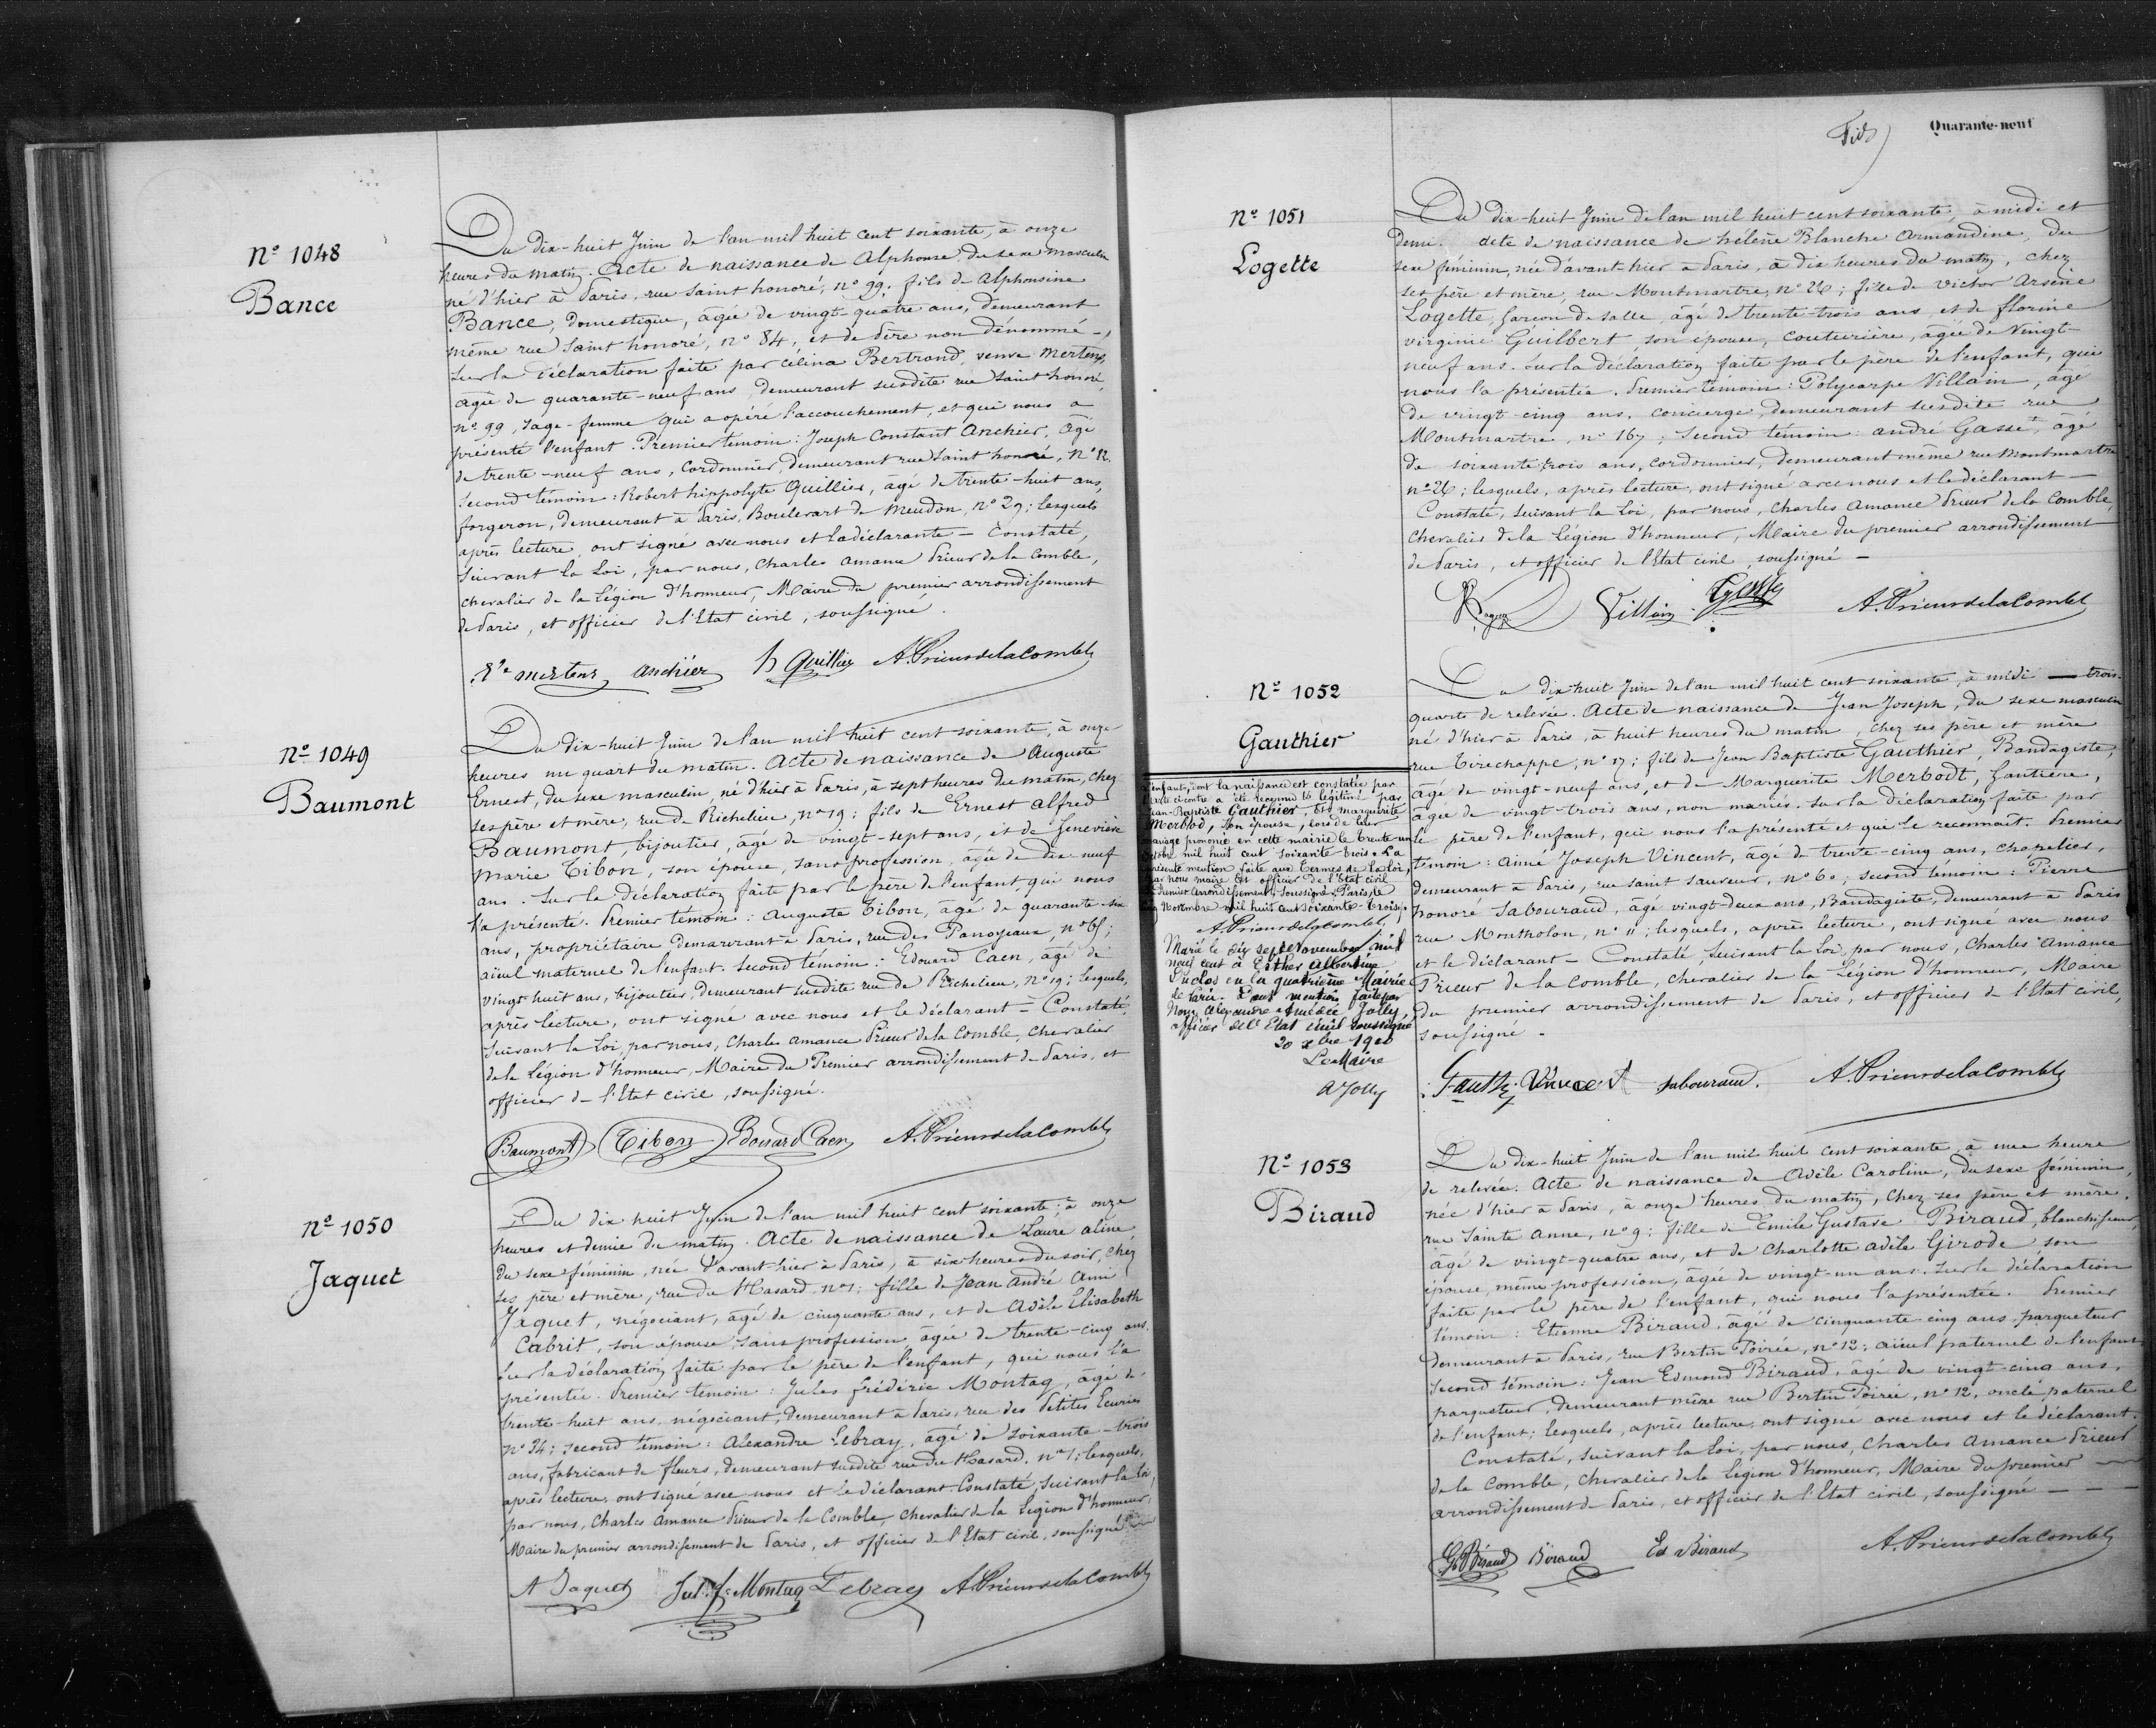 Nº 1048
Bance
Du dix-huit Juin de l'an mil huit cent soixante, à onze
heures du matin. Acte de naissance de Alphonse, du sexe masculin
né d'hier à Paris, rue Saint honoré, nº 99. fils de Alphonsine
Bance, domestique, âgée de vingt-quatre ans, demeurant
même rue Saint honoré, nº 84, et de Père non dénommé -,
Sur la déclaration faite par Célina Bertrand, veuve Mertens,
âgée de quarante-neuf ans, demeurant susdite rue Saint honoré,
nº 99, sage-femme qui a opéré l'accouchement, et qui nous a
présenté l'enfant. Premier témoin: Joseph Constant Anchier, âgé
de trente-neuf ans, cordonnier, demeurant rue Saint honoré, nº 12.
Second témoin: Robert hippolyte Quillier, âgé de trente-huit ans,
forgeron, demeurant à Paris, Boulevart de Meudon, nº 29; lesquels
après lecture, ont signé avec nous et la déclarante - Constaté,
suivant la Loi, par nous, Charles Amance Prieur de la Comble,
chevalier de la Légion d'honneur, Maire du premier arrondissement
de Paris, et officier de l'Etat civil, soussigné.
Ve mertens anchier h Quillier A. Prieur de la Comble
Nº 1049
Baumont
Du dix-huit Juin de l'an mil huit cent soixante, à onze
heures un quart du matin. Acte de naissance de Auguste
Ernest, du sexe masculin, né d'hier à Paris, à sept heures du matin, chez
ses père et mère, rue de Richelieu, nº 19; fils de Ernest Alfred
Baumont, bijoutier, âgé de vingt-sept ans, et de Geneviève
Marie Tibon, son épouse, sans profession, âgée de dix-neuf
ans. Sur la déclaration faite par le père de l'enfant, qui nous
l'a présenté. Premier témoin: Auguste Tibon, âgé de quarante-six
ans, propriétaire, demeurant à Paris, rue des Panoyeaux, nº 65;
aïeul maternel de l'enfant. Second témoin: Edouard Caen, âgé de
vingt-huit ans, bijoutier, demeurant susdite rue de Richelieu, nº 19; lesquels,
après lecture, ont signé avec nous et le déclarant - Constaté,
suivant la Loi, par nous, Charles Amance Prieur de la Comble, chevalier
de la Légion d'honneur, Maire du Premier arrondissement de Paris, et
officier de l'Etat civil, soussigné.
Baumont Tibon Edouard Caen A. Prieur de la Comble
Nº 1050
Jaquet
Du dix huit Juin de l'an mil huit cent soixante, à onze
heures et demie du matin. Acte de naissance de Laure Aline
du sexe féminin, née d'avant-hier à Paris, à six heures du soir, chez
ses père et mère, rue du Hasard, nº 1; fille de Jean André Ami
Jaquet, négociant, âgé de cinquante ans, et de Adèle Elisabeth
Cabrit, son épouse, sans profession, âgée de trente-cinq ans.
Sur la déclaration faite par le père de l'enfant, qui nous l'a
présentée. Premier témoin: Jules Frédéric Montag, âgé de
trente-huit ans, négociant, demeurant à Paris, rue des Petites Ecuries
nº 34; second témoin: Alexandre Lebray, âgé de soixante-trois
ans, fabricant de fleurs, demeurant susdite rue du Hasard, nº 1; lesquels,
après lecture, ont signé avec nous et le déclarant. Constaté, suivant la loi,
par nous, Charles Amance Prieur de la Comble, chevalier de la Légion d'honneur,
Maire du premier arrondissement de Paris, et officier de l'Etat civil, soussigné
A Jaquet Jul. f. Montag Lebray A. Prieur de la Comble
Quarante-neuf
Nº 1051
Logette
Du dix-huit Juin de l'an mil huit cent soixante, à midi et
demi. Acte de naissance de hélène Blanche Armandine, du
sexe féminin, née d'avant-hier à Paris, à dix heures du matin, chez
ses père et mère, rue Montmartre, nº 26; fille de Victor Arsène
Logette, garçon de salle, âgé de trente-trois ans, et de florine
virginie Guilbert son épouse, couturière, âgée de vingt-
neuf ans. Sur la déclaration faite par le père de l'enfant, qui
nous l'a présentée. Premier témoin: Polycarpe Villain, âgé
de vingt-cinq ans, concierge, demeurant susdite rue
Montmartre, nº 167; Second témoin: André Gasset, âgé
de soixante-trois ans, cordonnier, demeurant même rue Montmartre
nº 26; lesquels, après lecture, ont signé avec nous et le déclarant -
Constaté, suivant la Loi, par nous, Charles Amance Prieur de la Comble,
chevalier de la Légion d'honneur, Maire du premier arrondissement
de Paris, et officier de l'Etat civil, soussigné -
Villain A. Prieur de la Comble
Nº 1052
Gauthier
L'enfant dont la naissance est constatée par
l'acte ci-contre a été reconnu & légitimé par
Jean-Baptiste Gauthier, et Marguerite
Merbod, son épouse, lors de leur
mariage prononcé en cette mairie le trente-un
Octobre mil huit cent soixante-trois. La
présente mention faite aux termes de la loi,
par nous maire et officier de l'Etat civil
du Premier arrondissement, soussigné, Paris, le
Novembre mil huit cent soixante-trois.
A. Prieur de la Comble
Marié le dix sept Novembre mil
neuf cent à Esther Albertine
Duclos en la quatrième Mairie
de Paris. Dont mention faite par
Nous Alexandre Amédée Jolly
officier de l'Etat civil soussigné
20 xbre 1900
Le Maire
A Jolly
Du dix-huit Juin de l'an mil huit cent soixante, à midi — trois-
quarts de relevée. Acte de naissance de Jean Joseph, du sexe masculin
né d'hier à Paris, à huit heures du matin, chez ses père et mère
rue Tirechappe, nº 17; fils de Jean Baptiste Gauthier, Bandagiste,
âgé de vingt-neuf ans, et de Marguerite Merbodt, Gantière,
âgée de vingt-trois ans, non mariés. Sur la déclaration faite par
le père de l'enfant, qui nous l'a présenté et que le reconnaît. Premier
témoin: Aimé Joseph Vincent, âgé de trente-cinq ans, chapelier,
demeurant à Paris, rue Saint Sauveur, nº 60; second témoin: Pierre
honoré Sabouraud, âgé vingt-deux ans, Bandagiste, demeurant à Paris
rue Montholon, nº 11; lesquels, après lecture, ont signé avec nous
et le déclarant - Constaté, suivant la loi, par nous, Charles Amance
Prieur de la Comble, chevalier de la Légion d'honneur, Maire
du premier arrondissement de Paris, et officier de l'Etat civil,
soussigné -
Gauthier Vincent Sabouraud. A. Prieur de la Comble
Nº 1053
Biraud
Du dix-huit Juin de l'an mil huit cent soixante, à une heure
de relevée. Acte de naissance de Adèle Caroline, du sexe féminin,
née d'hier à Paris, à onze heures du matin, chez ses père et mère,
rue Sainte Anne, nº 9; fille de Emile Gustave Biraud, blanchisseur,
âgé de vingt-quatre ans, et de Charlotte Adèle Girode son
épouse, même profession, âgée de vingt-un ans. Sur la déclaration
faite par le père de l'enfant, qui nous l'a présentée. Premier
témoin: Etienne Biraud, âgé de cinquante-cinq ans, parqueteur
demeurant à Paris, rue Bertin Poirée, nº 12; aïeul paternel de l'enfant
Second témoin: Jean Edmond Biraud, âgé de vingt-cinq ans,
parqueteur, demeurant même rue Bertin Poirée, nº 12, oncle paternel
de l'enfant; lesquels, après lecture, ont signé avec nous et le déclarant.
Constaté, suivant la Loi, par nous, Charles Amance Prieur
de la Comble, chevalier de la Légion d'honneur, Maire du premier
arrondissement de Paris, et officier de l'Etat civil, soussigné - - -
Biraud Biraud Ed Biraud A. Prieur de la Comble